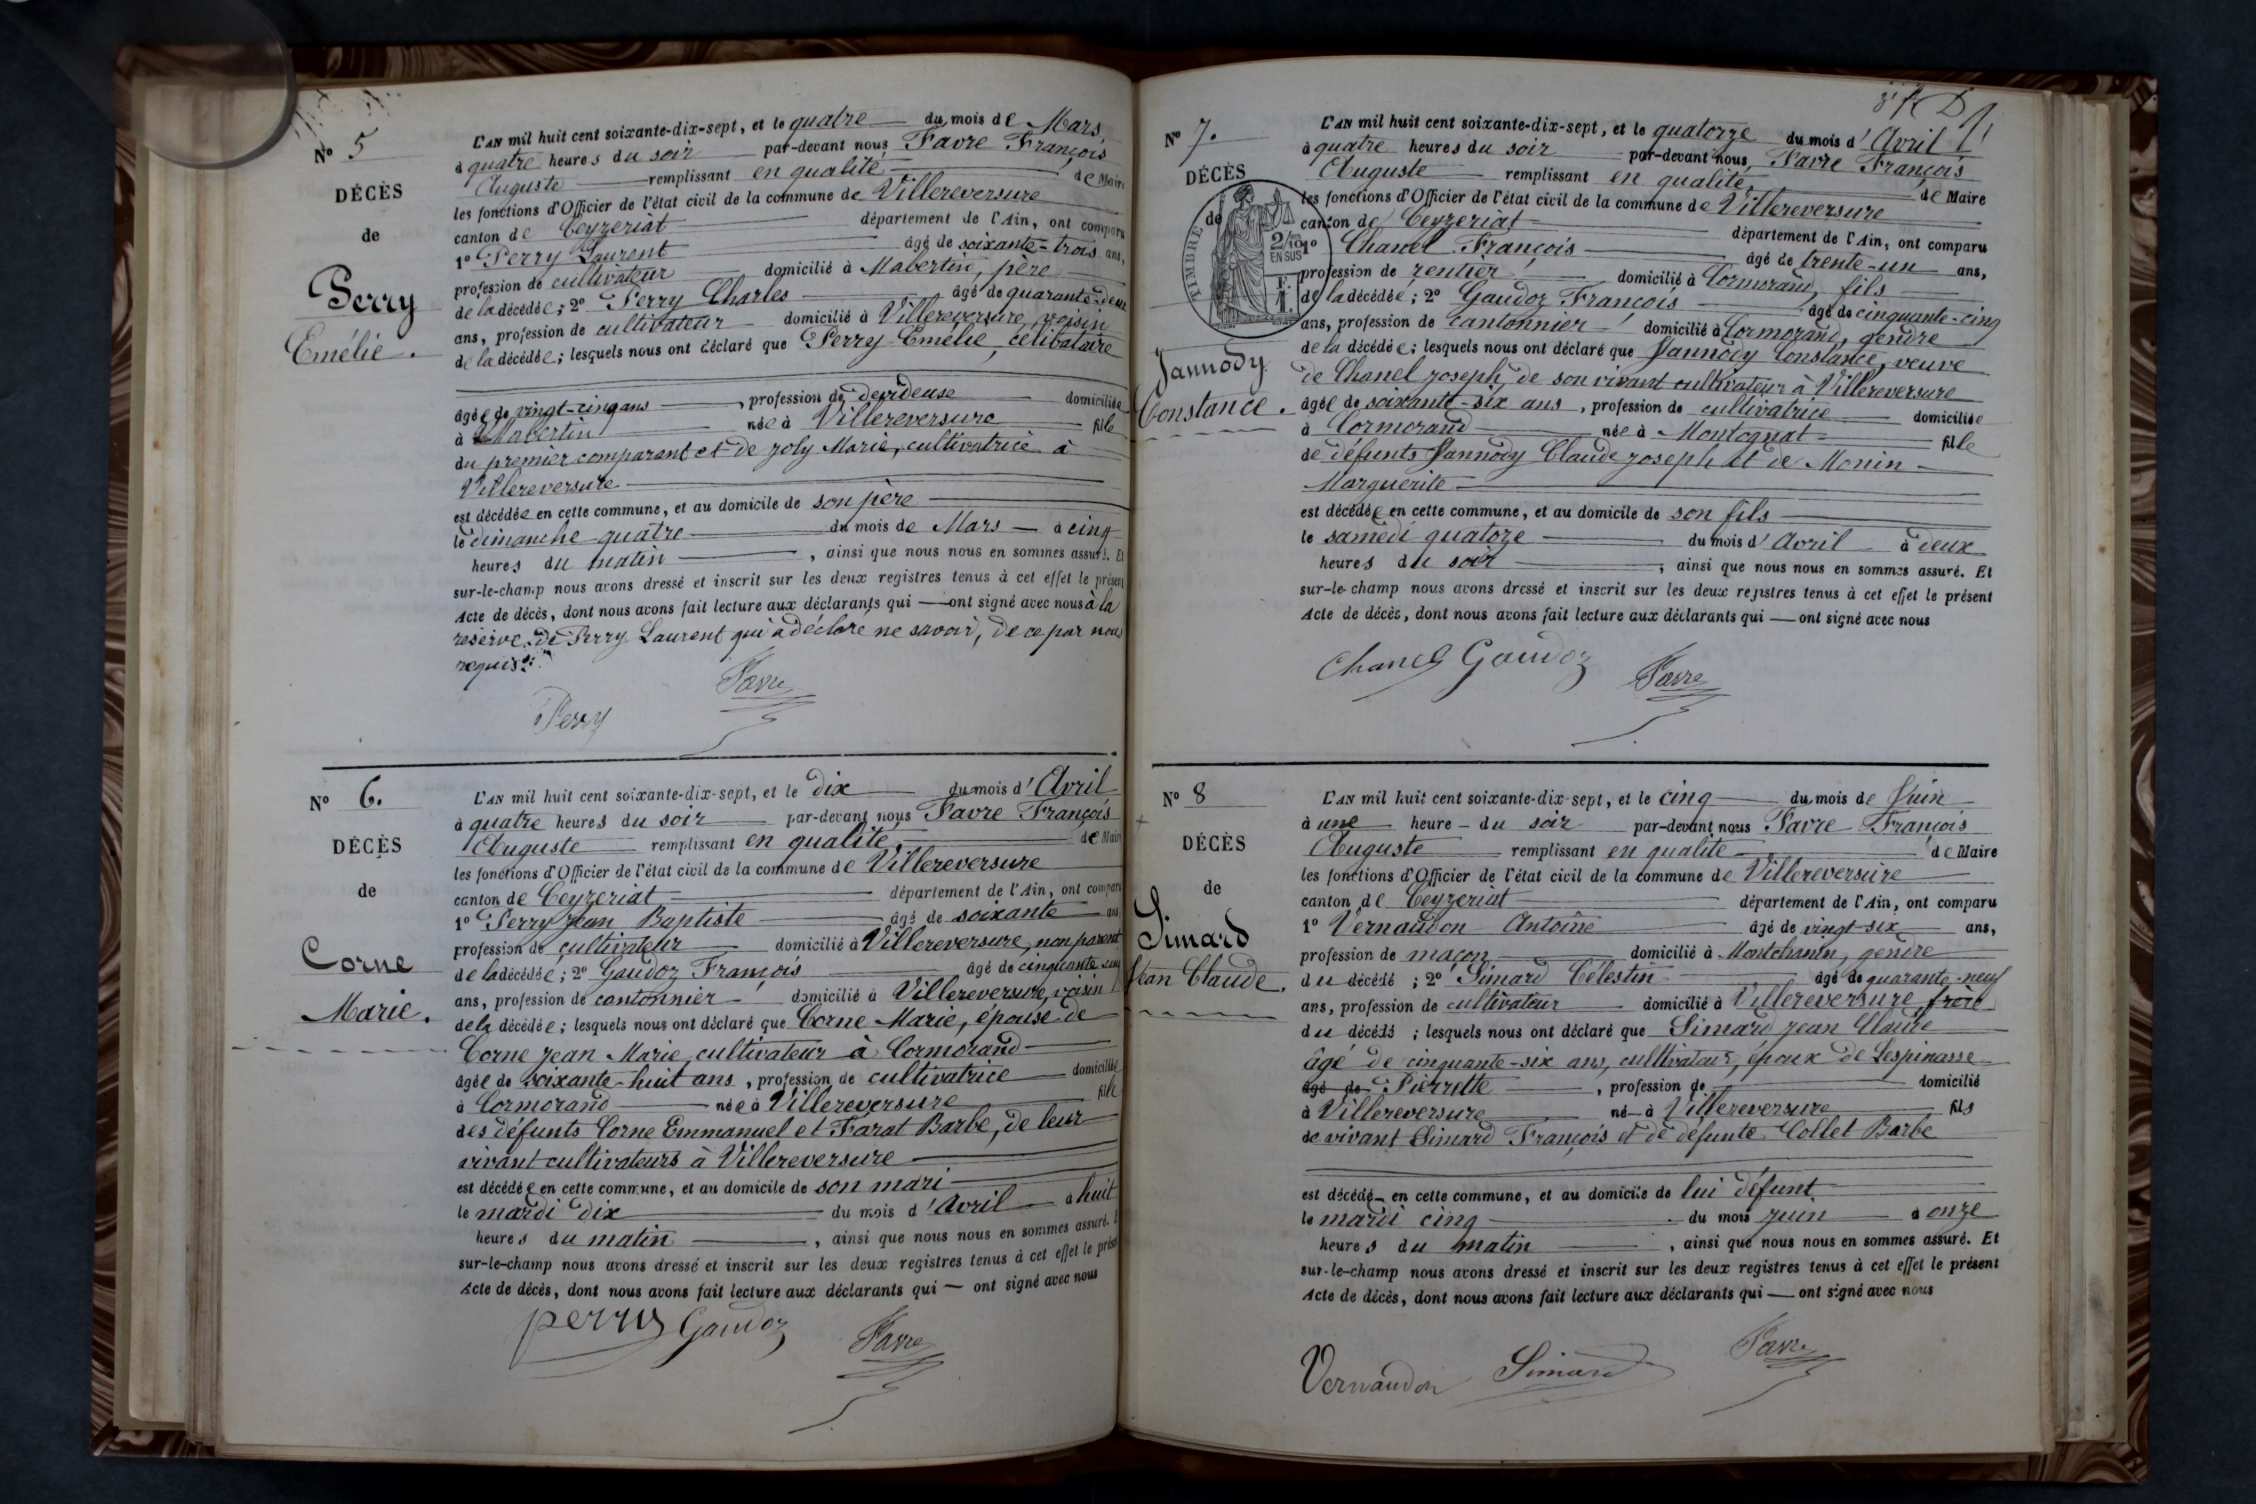 Nº 5
DÉCÈS
de
Perry
Emélie.
L'AN mil huit cent soixante-dix-sept, et le quatre du mois de Mars
à quatre heures du soir par-devant nous Favre François
Auguste remplissant en qualité de Maire
les fonctions d'Officier de l'état civil de la commune de Villereversure
canton de Ceyzeriat département de l'Ain, ont comparu
1º Perry Laurent âgé de soixante-trois ans,
profession de cultivateur domicilié à Mabertin, père
de la décédée; 2º Perry Charles âgé de quarante-deux
ans, profession de cultivateur domicilié à Villereversure, voisin
de la décédée; lesquels nous ont déclaré que Perry Emélie, célibataire
âgée de vingt-cinq ans, profession de dévideuse domiciliée
à Mabertin née à Villereversure fille
du premier comparant et de Joly Marie, cultivatrice à
Villereversure
est décédée en cette commune, et au domicile de son père
le dimanche quatre du mois de Mars à cinq
heures du matin, ainsi que nous nous en sommes assuré. Et
sur-le-champ nous avons dressé et inscrit sur les deux registres tenus à cet effet le présent
Acte de décès, dont nous avons fait lecture aux déclarants qui — ont signé avec nous à la
réserve de Perry Laurent qui a déclaré ne savoir, de ce par nous
requis.
Perry Favre
Nº 6.
DÉCÈS
de
Corne
Marie.
L'AN mil huit cent soixante-dix-sept, et le dix du mois d'Avril
à quatre heures du soir par-devant nous Favre François
Auguste remplissant en qualité de Maire
les fonctions d'Officier de l'état civil de la commune de Villereversure
canton de Ceyzeriat département de l'Ain, ont comparu
1º Perry Jean Baptiste âgé de soixante ans
profession de cultivateur domicilié à Villereversure, non parent
de la décédée; 2º Gaudoz François âgé de cinquante cinq
ans, profession de cantonnier domicilié à Villereversure, voisin
de la décédée; lesquels nous ont déclaré que Corne Marie, épouse de
Corne Jean Marie, cultivateur à Cormorand
âgée de soixante-huit ans, profession de cultivatrice domiciliée
à Cormorand née à Villereversure fille
des défunts Corne Emmanuel et Farat Barbe, de leur
vivant cultivateurs à Villereversure
est décédée en cette commune, et au domicile de son mari
le mardi dix du mois d'Avril à huit
heures du matin, ainsi que nous nous en sommes assuré. E
sur-le-champ nous avons dressé et inscrit sur les deux registres tenus à cet effet le présent
Acte de décès, dont nous avons fait lecture aux déclarants qui — ont signé avec nous
Perry Gaudoz Favre
Nº 7.
DÉCÈS
de
TIMBRE
2/10 EN SUS
F. 1.
Jannody
Constance.
L'AN mil huit cent soixante-dix-sept, et le quatorze du mois d'Avril
à quatre heures du soir par-devant nous, Favre François
Auguste remplissant en qualité de Maire
les fonctions d'Officier de l'état civil de la commune de Villereversure
canton de Ceyzeriat département de l'Ain, ont comparu
1º Chanel François âgé de trente-un ans,
profession de rentier domicilié à Cormorand, fils
de la décédée; 2º Gaudoz François âgé de cinquante-cinq
ans, profession de cantonnier domicilié à Cormorand, gendre
de la décédée; lesquels nous ont déclaré que Jannody Constance, veuve
de Chanel Joseph, de son vivant cultivateur à Villereversure
âgée de soixante-six ans, profession de cultivatrice domiciliée
à Cormorand née à Montognat fille
de défunts Jannody Claude Joseph et de Monin
Marguerite
est décédée en cette commune, et au domicile de son fils
le samedi quatorze du mois d'Avril à deux
heures du soir, ainsi que nous nous en sommes assuré. Et
sur-le-champ nous avons dressé et inscrit sur les deux registres tenus à cet effet le présent
Acte de décès, dont nous avons fait lecture aux déclarants qui — ont signé avec nous
Chanel Gaudoz Favre
Nº 8
DÉCÈS
de
Simard
Jean Claude.
L'AN mil huit cent soixante-dix-sept, et le cinq du mois de Juin
à une heure du soir par-devant nous Favre François
Auguste remplissant en qualité de Maire
les fonctions d'Officier de l'état civil de la commune de Villereversure
canton de Ceyzeriat département de l'Ain, ont comparu
1º Vernaudon Antoine âgé de vingt-six ans,
profession de maçon domicilié à Montchanin, gendre
du décédé; 2º Simard Célestin âgé de quarante-neuf
ans, profession de cultivateur domicilié à Villereversure frère
du décédé; lesquels nous ont déclaré que Simard Jean Claude
âgé de cinquante-six ans, cultivateur, époux de Lespinasse
âgé de Pierrette, profession de domicilié
à Villereversure né à Villereversure fils
de vivant Simard François et de défunte Collet Barbe
est décédé en cette commune, et au domicile de lui défunt
le mardi cinq du mois juin à onze
heures du matin, ainsi que nous nous en sommes assuré. Et
sur-le-champ nous avons dressé et inscrit sur les deux registres tenus à cet effet le présent
Acte de décès, dont nous avons fait lecture aux déclarants qui — ont signé avec nous
Vernaudon Simard Favre